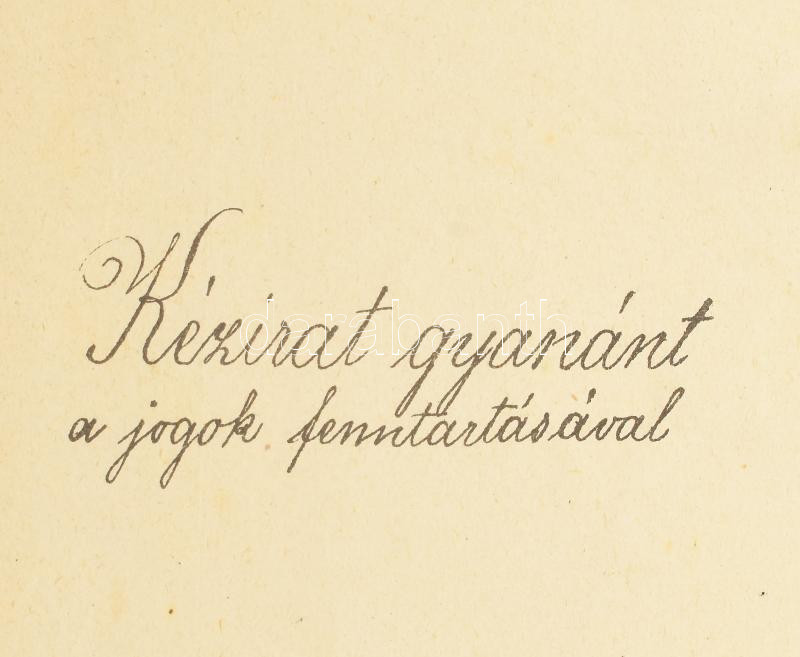 Kézirat gyanánt
a jogok fenntartásával
darabanth